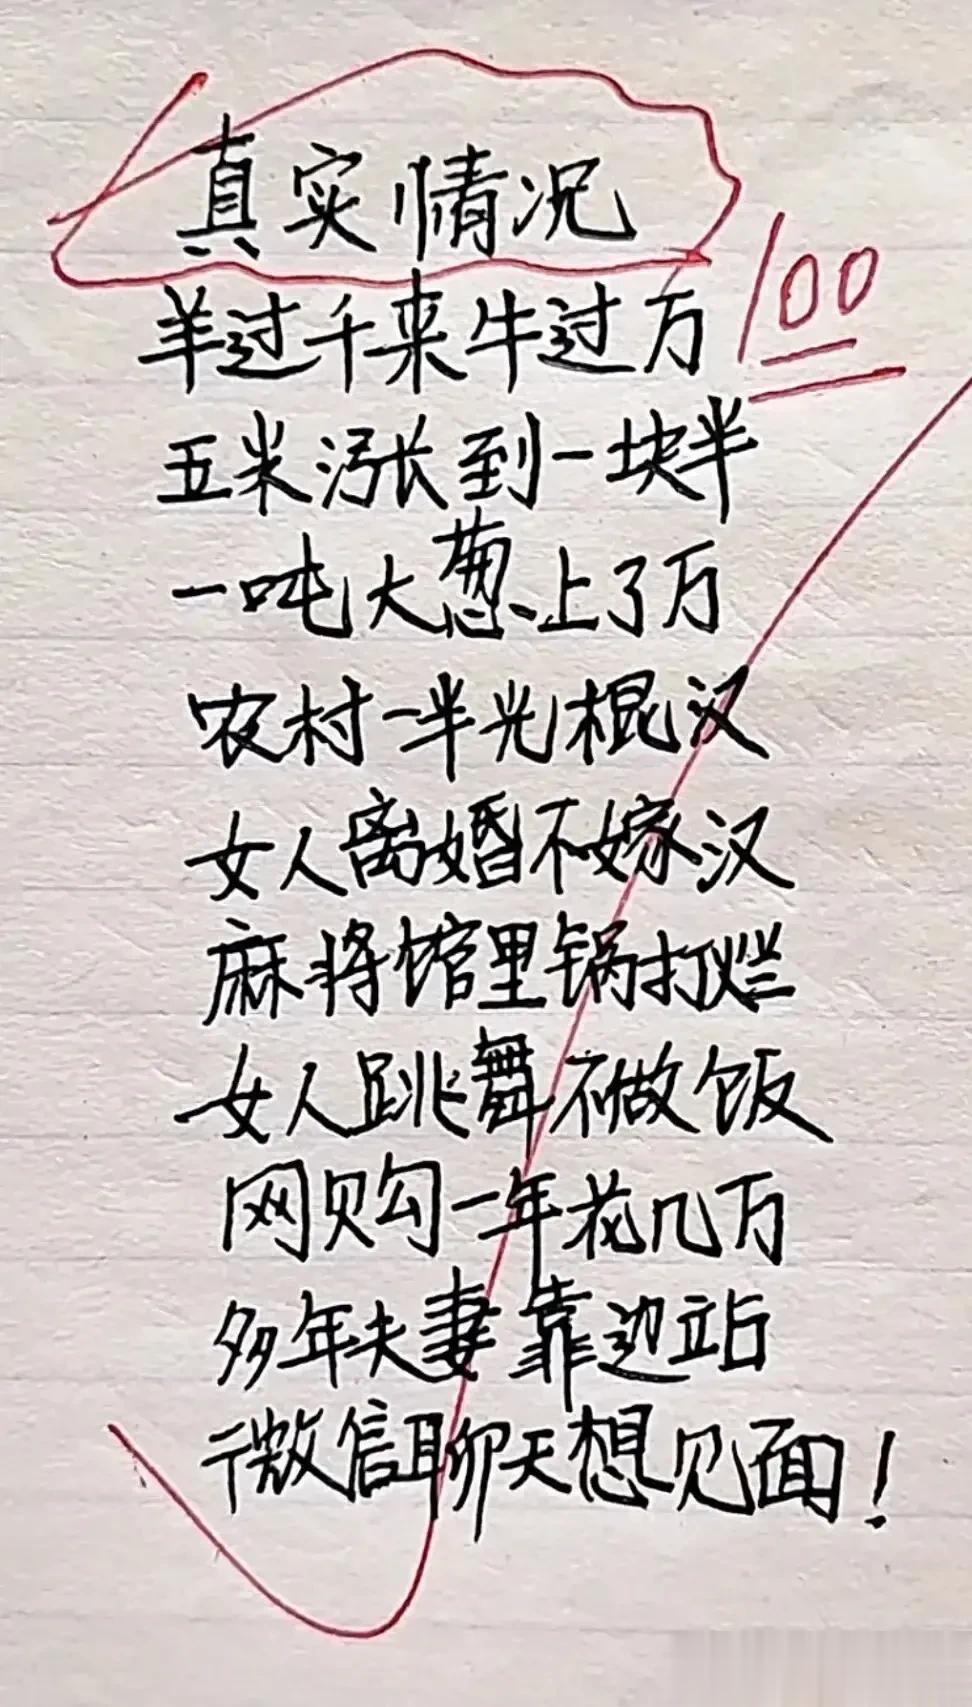 真实情况
100
羊过千来牛过万
五米涨到一块半
一吨大葱上了万
农村一半光棍汉
女人离婚不嫁汉
麻将馆里锅打烂
女人跳舞不做饭
网购一年花几万
多年夫妻靠边站
微信聊天想见面!